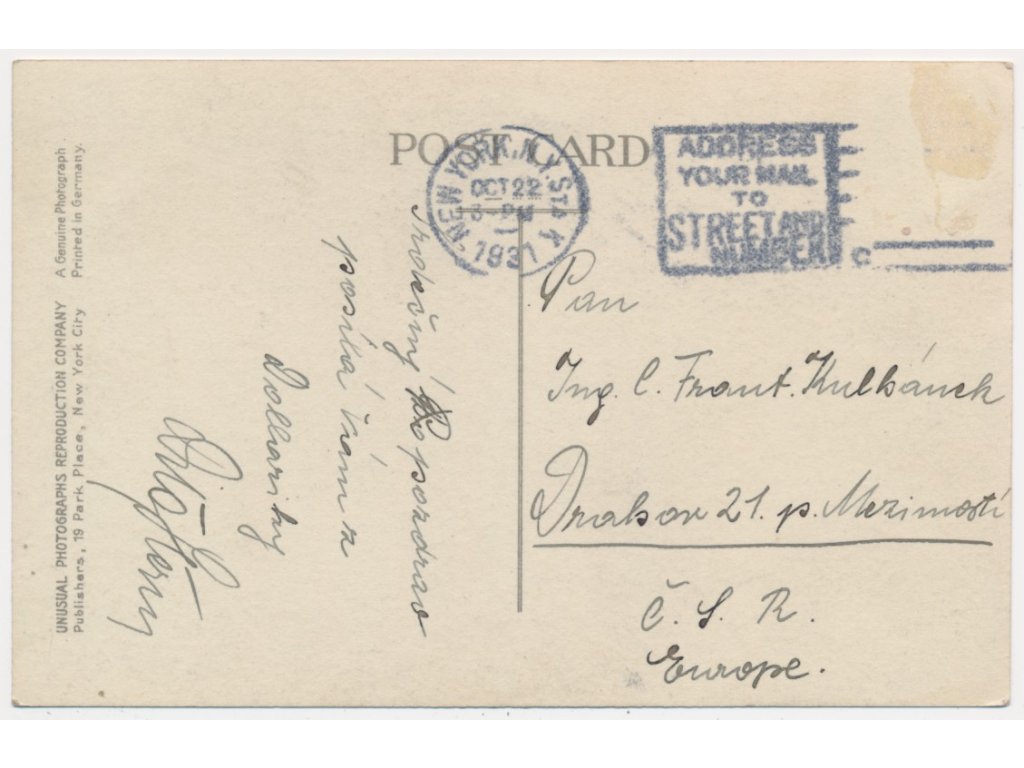 POST CARD
NEW YORK, N.Y. STA K
OCT 22
PM
1931
ADDRESS
YOUR MAIL
TO
STREET AND
NUMBER
Pan
Ing. C. Frant. Kulhánek
Drakov 21. p. Mezimostí
Č. S. R.
Europe.
Srdečný pozdrav
posílá Vám z
UNUSUAL PHOTOGRAPHS REPRODUCTION COMPANY
Publishers, 19 Park Place, New York City
A Genuine Photograph
Printed in Germany.